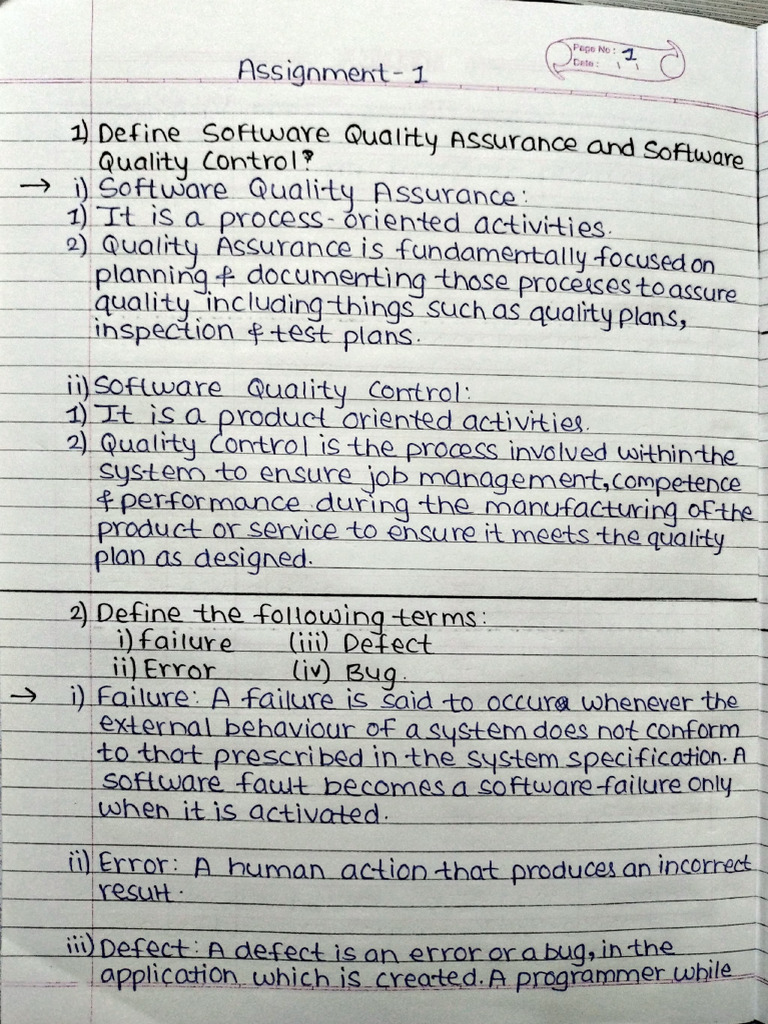 Assignment - 1
Page No: 1
Date:
1) Define Software Quality Assurance and Software
Quality Control?
→ i) Software Quality Assurance:
1) It is a process-oriented activities.
2) Quality Assurance is fundamentally focused on
planning & documenting those processes to assure
quality including things such as quality plans,
inspection & test plans.
ii) Software Quality Control:
1) It is a product oriented activities.
2) Quality Control is the process involved within the
system to ensure job management, competence
& performance during the manufacturing of the
product or service to ensure it meets the quality
plan as designed.
2) Define the following terms:
i) failure (iii) Defect
ii) Error (iv) Bug.
→ i) Failure: A failure is said to occur whenever the
external behaviour of a system does not conform
to that prescribed in the system specification. A
software fault becomes a software failure only
when it is activated.
ii) Error: A human action that produces an incorrect
result.
iii) Defect: A defect is an error or a bug, in the
application which is created. A programmer while